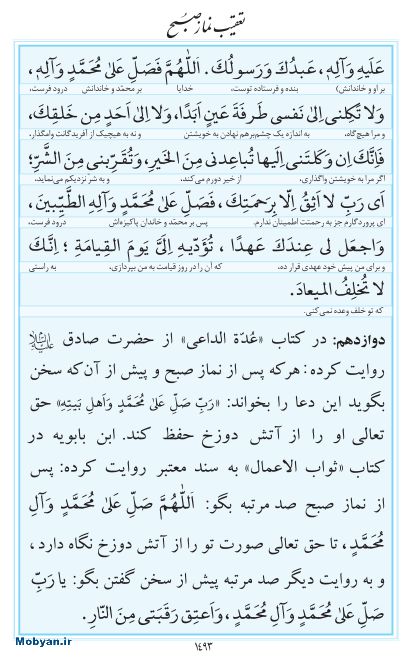 تعقیب نماز صبح
عَلَيهِ وَآلِهِ، عَبدُكَ وَرَسولُكَ. اَللّٰهُمَّ فَصَلِّ عَلىٰ مُحَمَّدٍ وَآلِهِ،
بر او و خاندانش) بنده و فرستاده توست، خدایا بر محمّد و خاندانش درود فرست،
وَلا تَكِلنى اِلىٰ نَفسى طَرفَةَ عَينٍ اَبَدًا، وَلا اِلىٰ اَحَدٍ مِن خَلقِكَ،
و مرا هیچ‌گاه، به اندازه یک چشم‌برهم نهادن به خویشتن و نه به هیچیک از آفریدگانت وامگذار.
فَاِنَّكَ اِن وَكَلتَنى اِلَيها تُباعِدنى مِنَ الخَيرِ، وَتُقَرِّبنى مِنَ الشَّرِّ؛
اگر مرا به خویشتن واگذاری، از خیر دورم می‌کند، و به شر نزدیکم می‌نماید.
اَى رَبِّ لا اَثِقُ اِلّا بِرَحمَتِكَ، فَصَلِّ عَلىٰ مُحَمَّدٍ وَآلِهِ الطَّيِّبينَ،
ای پروردگارم جز به رحمتت اطمینان ندارم. پس بر محمّد و خاندان پاکیزه‌اش درود فرست،
وَاجعَل لى عِندَكَ عَهدًا ، تُؤَدّيهِ اِلَىَّ يَومَ القِيامَةِ ؛ اِنَّكَ
و برای من پیش خود عهدی قرار ده، که آن را در روز قیامت به من بپردازی، به راستی
لا تُخلِفُ الميعادَ.
که تو خلف وعده نمی‌کنی.
دوازدهم: در کتاب «عُدّة الداعی» از حضرت صادق
روایت کرده: هرکه پس از نماز صبح و پیش از آن‌که سخن
بگوید این دعا را بخواند: «رَبِّ صَلِّ عَلىٰ مُحَمَّدٍ وَاَهلِ بَيتِهِ» حق
تعالی او را از آتش دوزخ حفظ کند. ابن بابویه در
کتاب «ثواب الاعمال» به سند معتبر روایت کرده: پس
از نماز صبح صد مرتبه بگو: اَللّٰهُمَّ صَلِّ عَلىٰ مُحَمَّدٍ وَآلِ
مُحَمَّدٍ، تا حق تعالی صورت تو را از آتش دوزخ نگاه دارد،
و به روایت دیگر صد مرتبه پیش از سخن گفتن بگو: يا رَبِّ
صَلِّ عَلىٰ مُحَمَّدٍ وَآلِ مُحَمَّدٍ، وَاَعتِق رَقَبَتى مِنَ النّارِ.
۱۴۹۳
Mobyan.ir